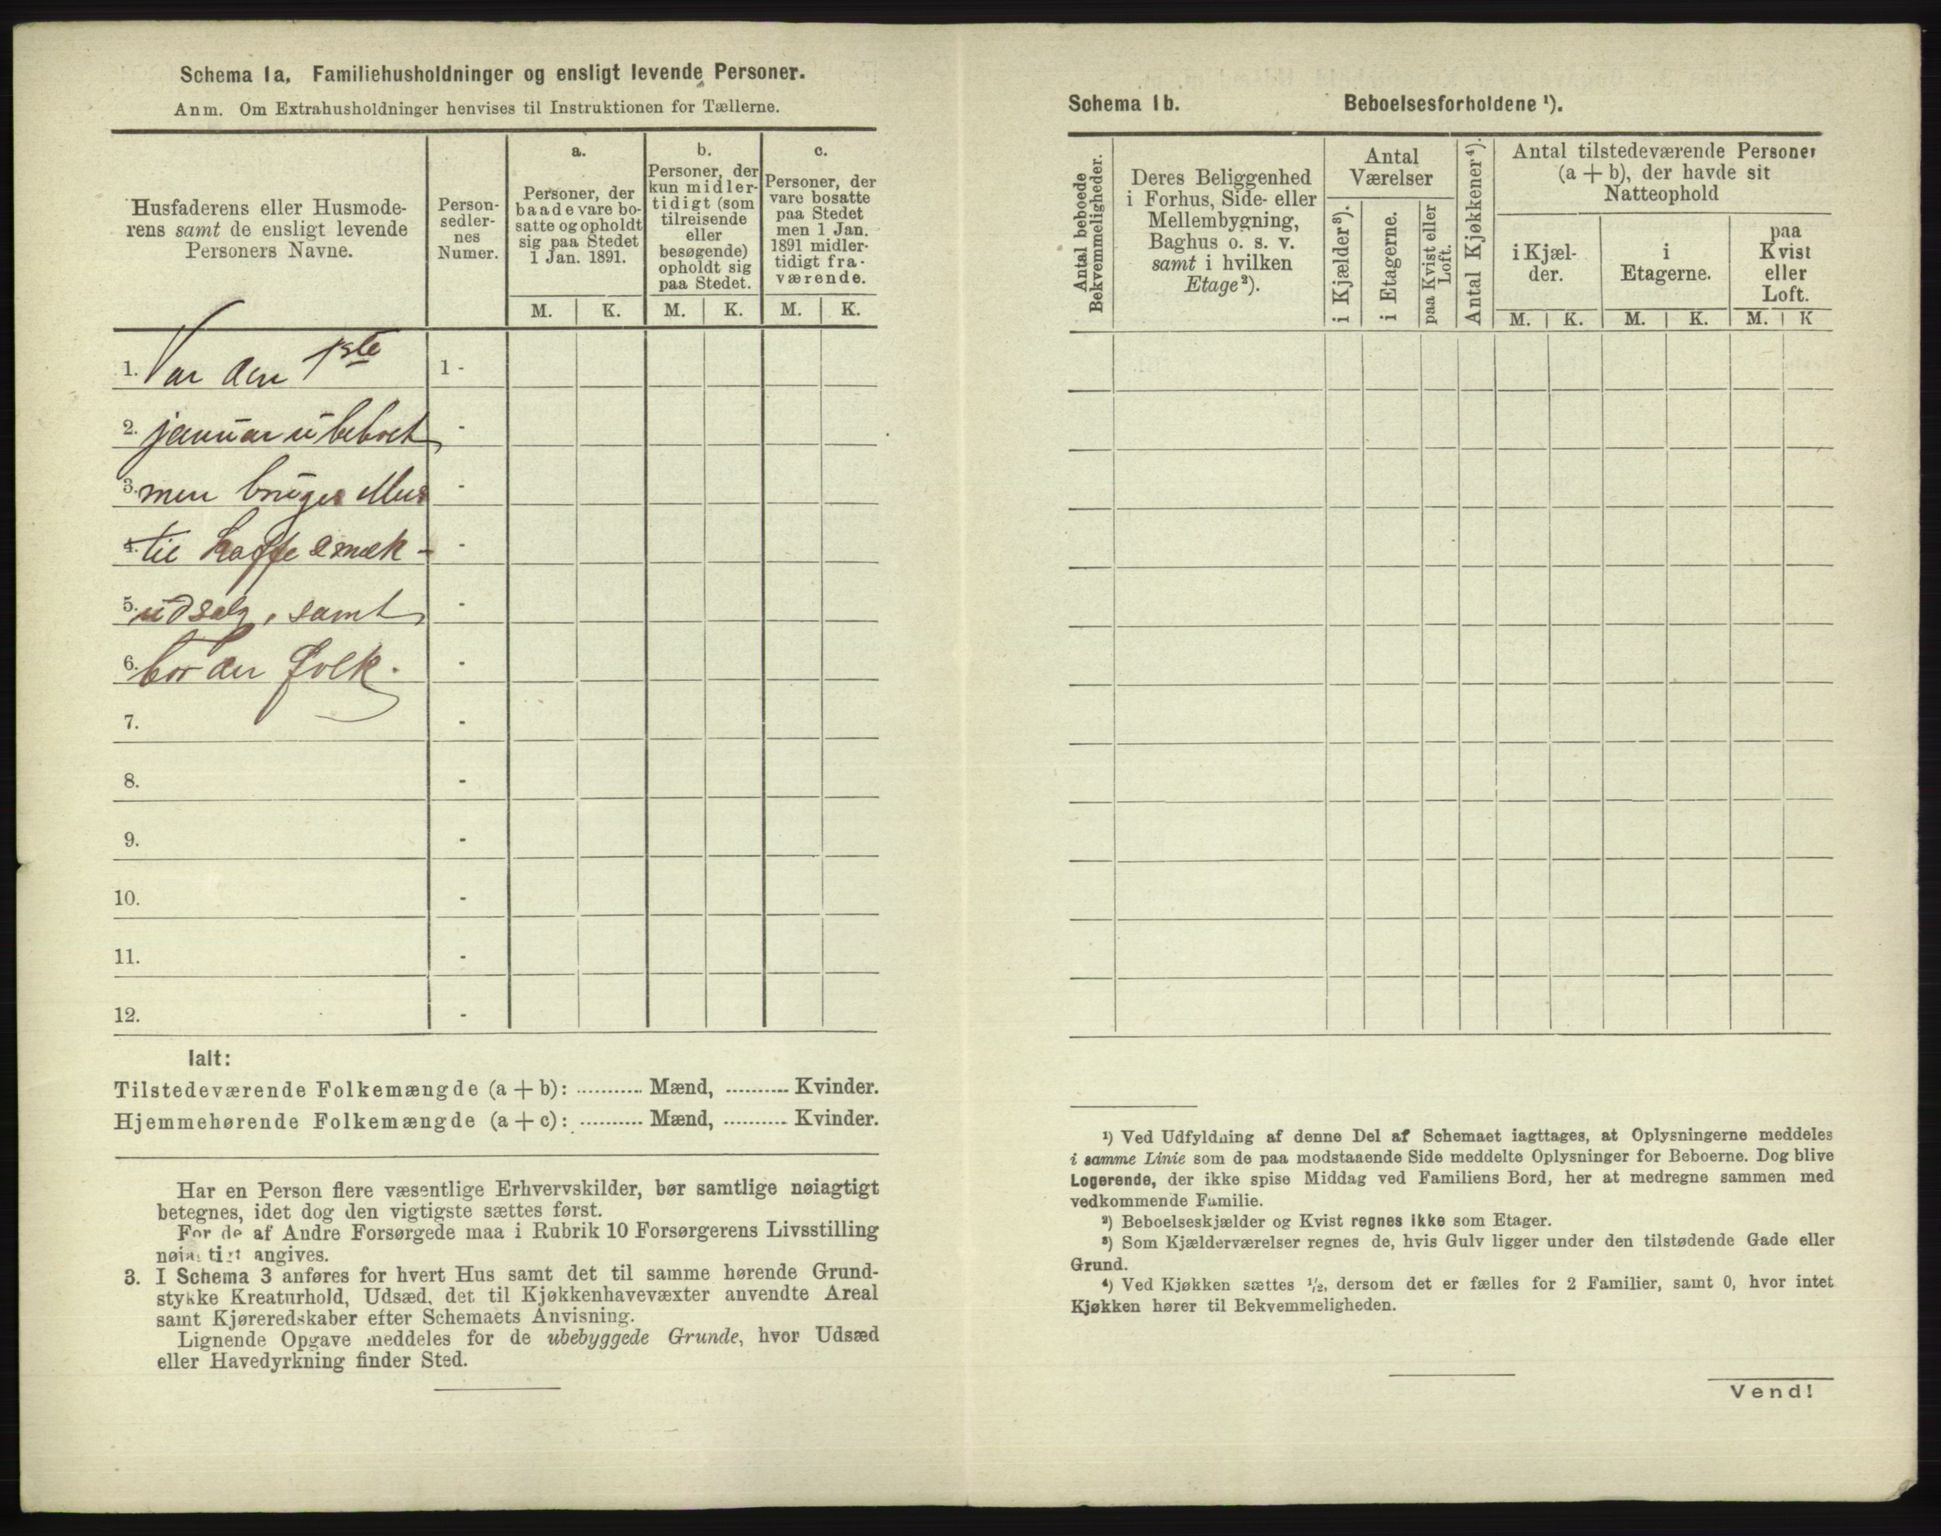 Schema 1a. Familiehusholdninger og ensligt levende Personer.
Anm. Om Extrahusholdninger henvises til Instruktionen for Tællerne.
Husfaderens eller Husmode-
rens samt de ensligt levende
Personers Navne.
Person-
sedler-
nes
Numer.
a.
Personer, der
baade vare bo-
satte og opholdt
sig paa Stedet
1 Jan. 1891.
b.
Personer, der
kun midler-
tidigt (som
tilreisende
eller
besøgende)
opholdt sig
paa Stedet.
c.
Personer, der
vare bosatte
paa Stedet
men 1 Jan.
1891 midler-
tidigt fra-
værende.
M. K. M. K. M. K.
1. Var den 1ste 1 -
2. januar ubeboet -
3. men bruges -
4. til Kaffe -
5. udsalg, samt -
6. bor der folk. -
7. -
8. -
9. -
10. -
11. -
12. -
Ialt:
Tilstedeværende Folkemængde (a + b): ........... Mænd, ........... Kvinder.
Hjemmehørende Folkemængde (a + c): ........... Mænd, ........... Kvinder.
Har en Person flere væsentlige Erhvervskilder, bør samtlige nøiagtigt
betegnes, idet dog den vigtigste sættes først.
For de af Andre Forsørgede maa i Rubrik 10 Forsørgerens Livsstilling
nøiagtigt angives.
3. I Schema 3 anføres for hvert Hus samt det til samme hørende Grund-
stykke Kreaturhold, Udsæd, det til Kjøkkenhavevæxter anvendte Areal
samt Kjøreredskaber efter Schemaets Anvisning.
Lignende Opgave meddeles for de ubebyggede Grunde, hvor Udsæd
eller Havedyrkning finder Sted.
Schema 1b. Beboelsesforholdene ¹).
Antal beboede
Bekvemmeligheder.
Deres Beliggenhed
i Forhus, Side- eller
Mellembygning,
Baghus o. s. v.
samt i hvilken
Etage ²).
Antal
Værelser
i Kjælder ³).
i Etagerne.
paa Kvist eller
Loft.
Antal Kjøkkener ⁴).
Antal tilstedeværende Personer
(a + b), der havde sit
Natteophold
i Kjæl-
der.
i
Etagerne.
paa
Kvist
eller
Loft.
M. K. M. K. M. K
¹) Ved Udfyldning af denne Del af Schemaet iagttages, at Oplysningerne meddeles
i samme Linie som de paa modstaaende Side meddelte Oplysninger for Beboerne. Dog blive
Logerende, der ikke spise Middag ved Familiens Bord, her at medregne sammen med
vedkommende Familie.
²) Beboelseskjælder og Kvist regnes ikke som Etager.
³) Som Kjælderværelser regnes de, hvis Gulv ligger under den tilstødende Gade eller
Grund.
⁴) Ved Kjøkken sættes ¹/₂, dersom det er fælles for 2 Familier, samt 0, hvor intet
Kjøkken hører til Bekvemmeligheden.
Vend!